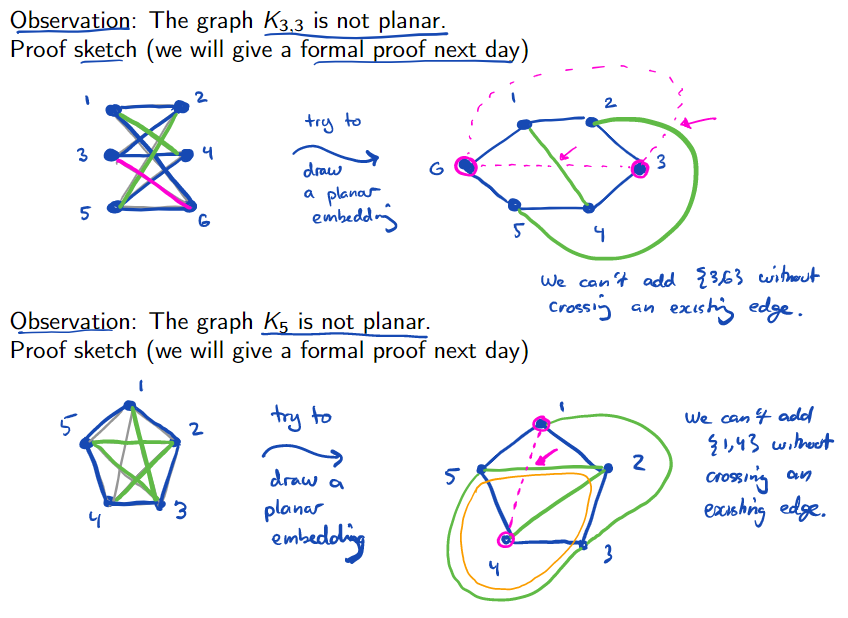 Observation: The graph K3,3 is not planar.
Proof sketch (we will give a formal proof next day)
1 2
3 4
5 6
try to
draw
a planar
embedding
1 2
6 3
5 4
We can't add {3,6} without
crossing an existing edge.
Observation: The graph K5 is not planar.
Proof sketch (we will give a formal proof next day)
1
5 2
4 3
try to
draw a
planar
embedding
1
5 2
4 3
We can't add
{1,4} without
crossing an
existing edge.